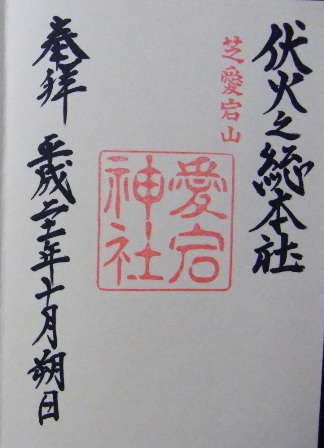 伏火之総本社
芝愛宕山
愛宕
神社
奉拝
平成二十一年十月朔日